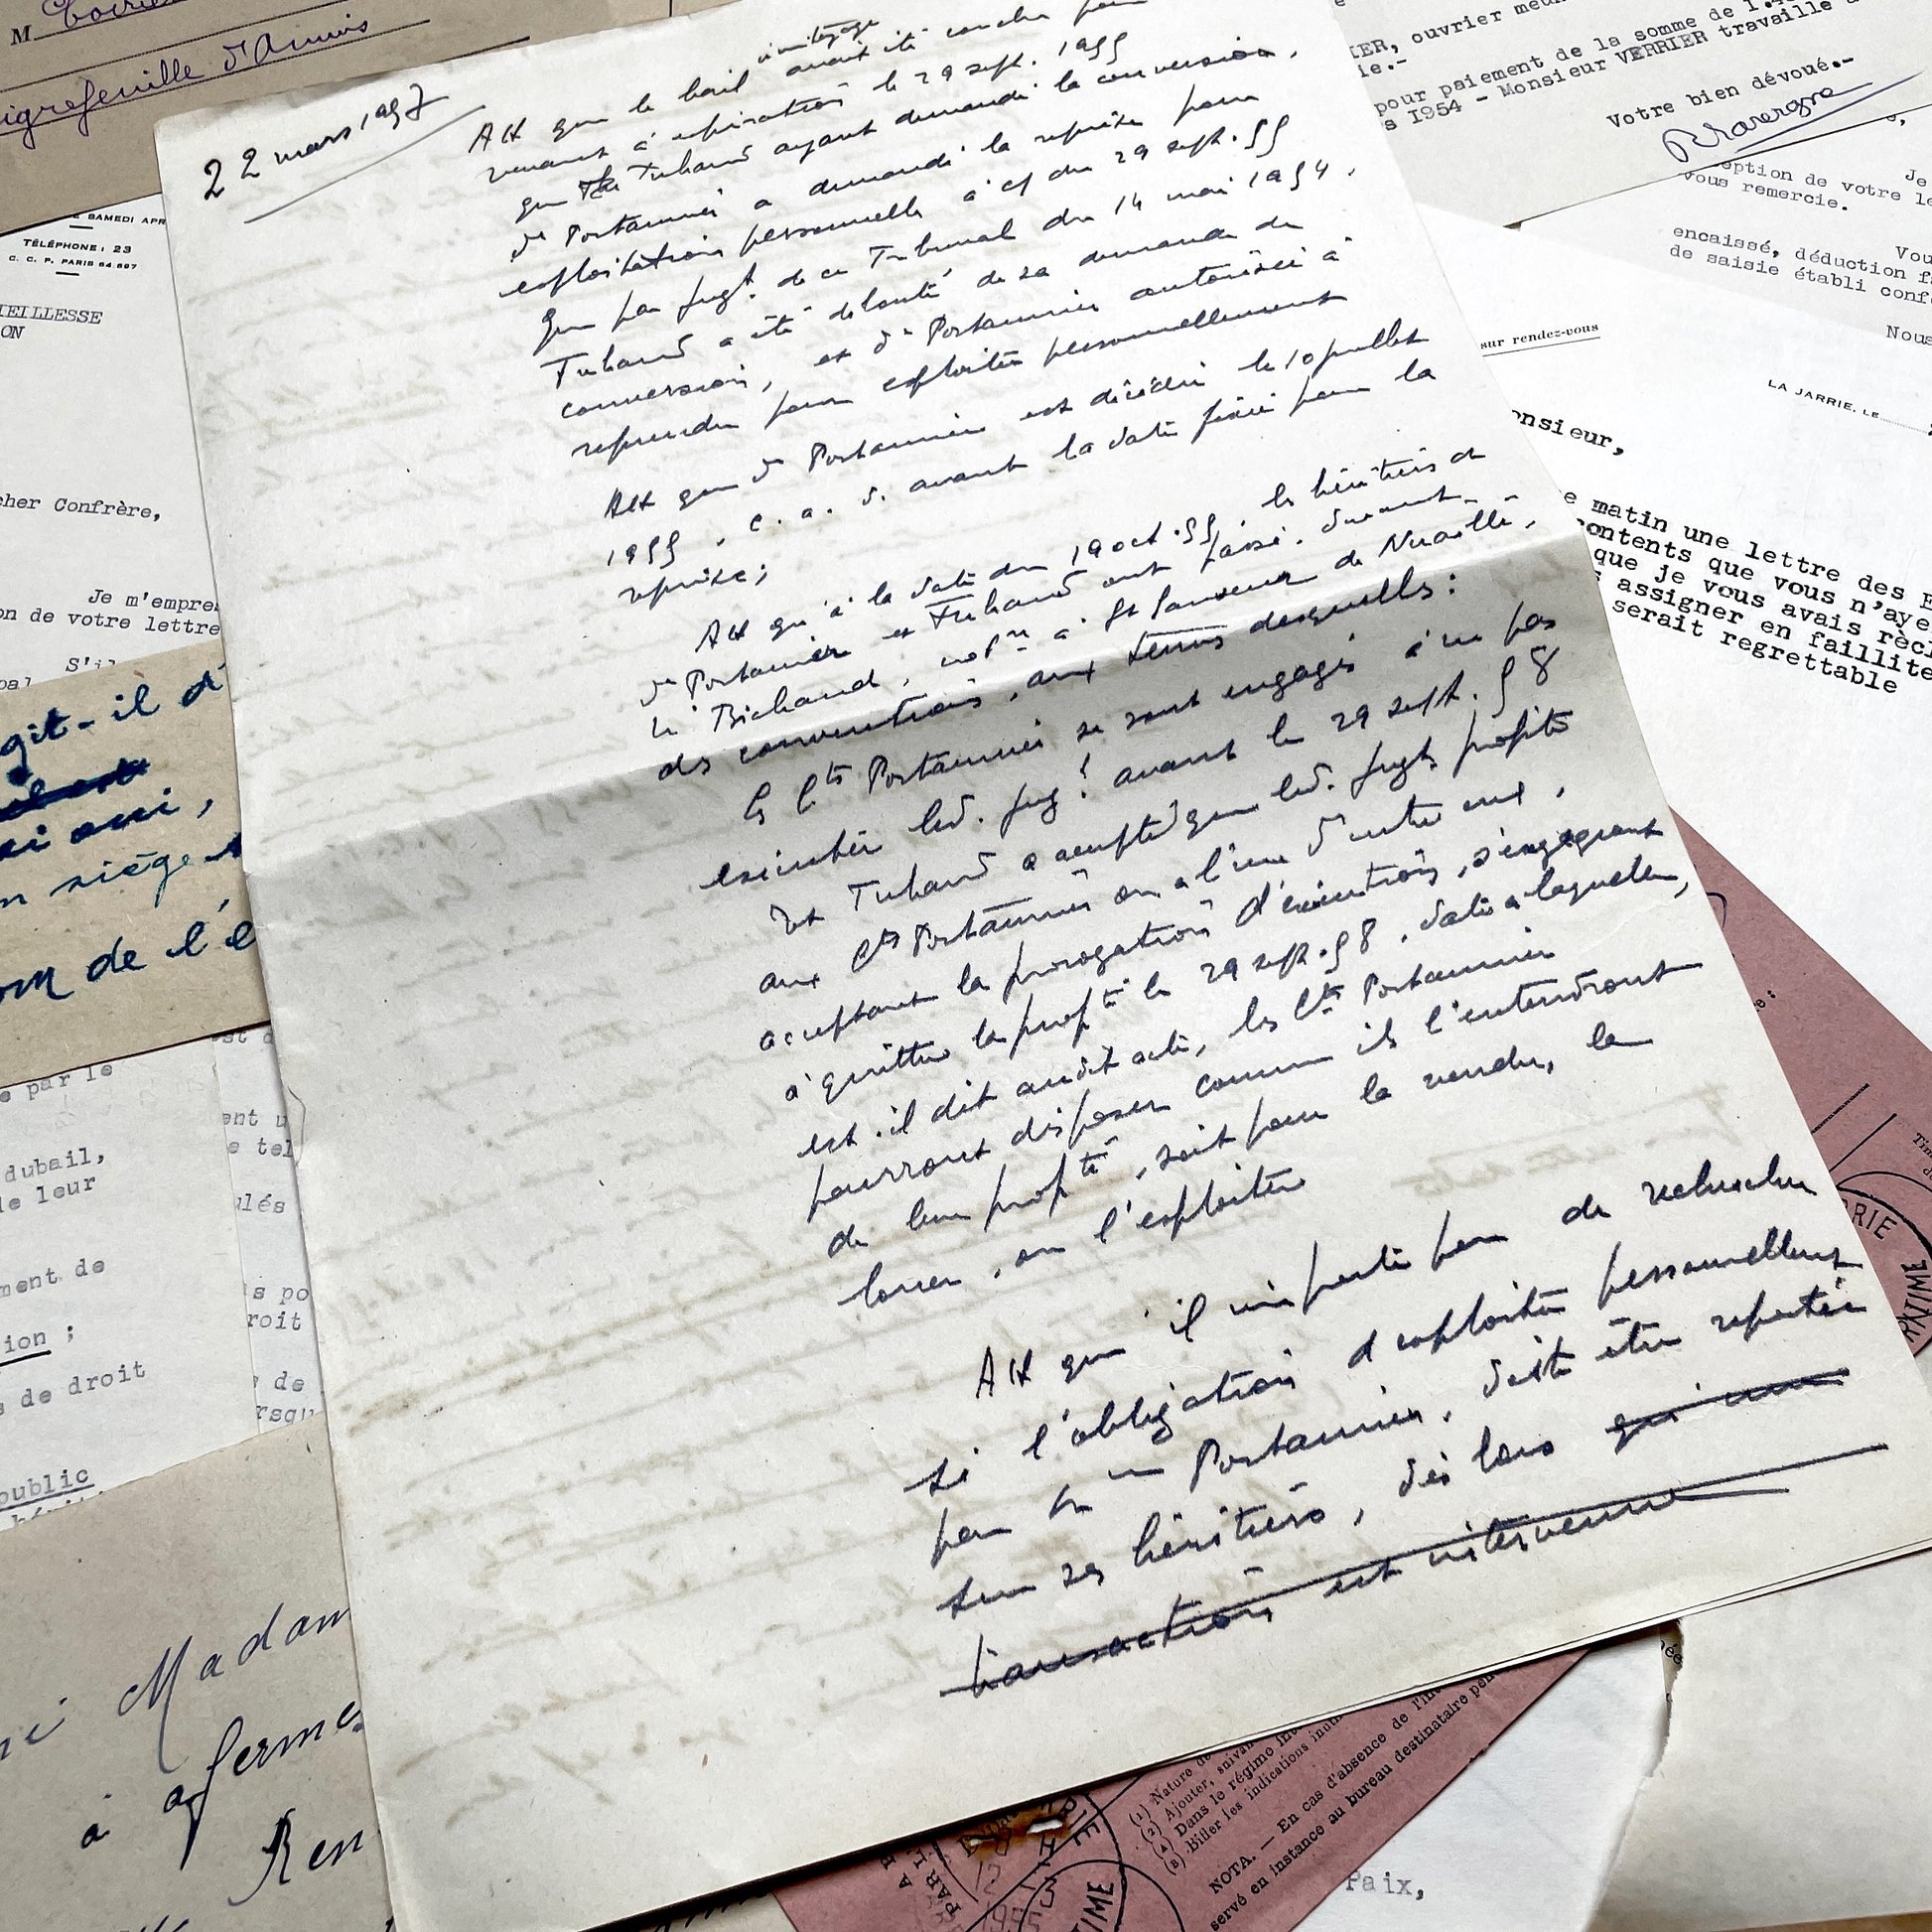 22 mars 1957
Att que le bail
à métayage
avait été conclu pour
venant à expiration le 29 sept. 1955
que Tuhaud ayant demandé la conversion,
de Portannier a demandé la reprise pour
exploitation personnelle à c/ du 29 sept. 55
Que par jugt. de ce Tribunal du 14 mai 1954,
Tuhaud a été débouté de sa demande de
conversion, et de Portannier autorisée à
reprendre pour exploiter personnellement
Att que de Portannier est décédée le 10 juillet
1955, c. a. d. avant la date fixée pour la
reprise;
Att qu'à la date du 19 oct. 55, les héritiers de
de Portannier et Tuhaud ont passé, devant
Me Bichaud, not. à St Sauveur de Nuaillé,
des conventions, aux termes desquelles:
les Cts Portannier se sont engagés à ne pas
exécuter led. jugt avant le 29 sept. 58
et Tuhaud a accepté que led. jugt. profite
aux Cts Portannier ou à l'un d'entre eux,
acceptant la prorogation d'exécution, s'engageant
à quitter la propté le 29 sept. 58, date à laquelle,
est-il dit audit acte, les Cts Portannier
pourront disposer comme ils l'entendront
de leur propté, soit pour la vendre, la
louer, ou l'exploiter
Att qu'il importe peu de rechercher
si l'obligation d'exploiter personnellemt
par Portannier, doit être reportée
sur ses héritiers, dès lors qu'une
transaction est intervenue
M
Aigrefeuille d'Aunis
SAMEDI APR
TÉLÉPHONE: 23
C. C. P. PARIS
IEILLESSE
ON
cher Confrère,
Je m'empres
on de votre lettre
S'il
git-il d'
n siège
om de l'é
par le
dubail,
de leur
ment de
ion ;
s de droit
public
ent u
e tel
ulés
s po
roit
s de
rsqu
Madam
à aferme
Ren
IER, ouvrier
ie.-
pour paiement de la somme de
s 1954 - Monsieur VERRIER travaille
Votre bien dévoué.-
Je
eption de votre le
vous remercie.
Vou
encaissé, déduction f
de saisie établi conf
Nous
sur rendez-vous
LA JARRIE, LE
onsieur,
e matin une lettre des
ontents que vous n'aye
que je vous avais récl
assigner en faillite
serait regrettable
RIE
RITIME
(1) Nature de
(2) Ajouter, suivan
(4) Dans le régime in
(5) Biffer les indications inuti
NOTA. — En cas d'absence de l'in
servé en instance au bureau destinataire pen
Paix,